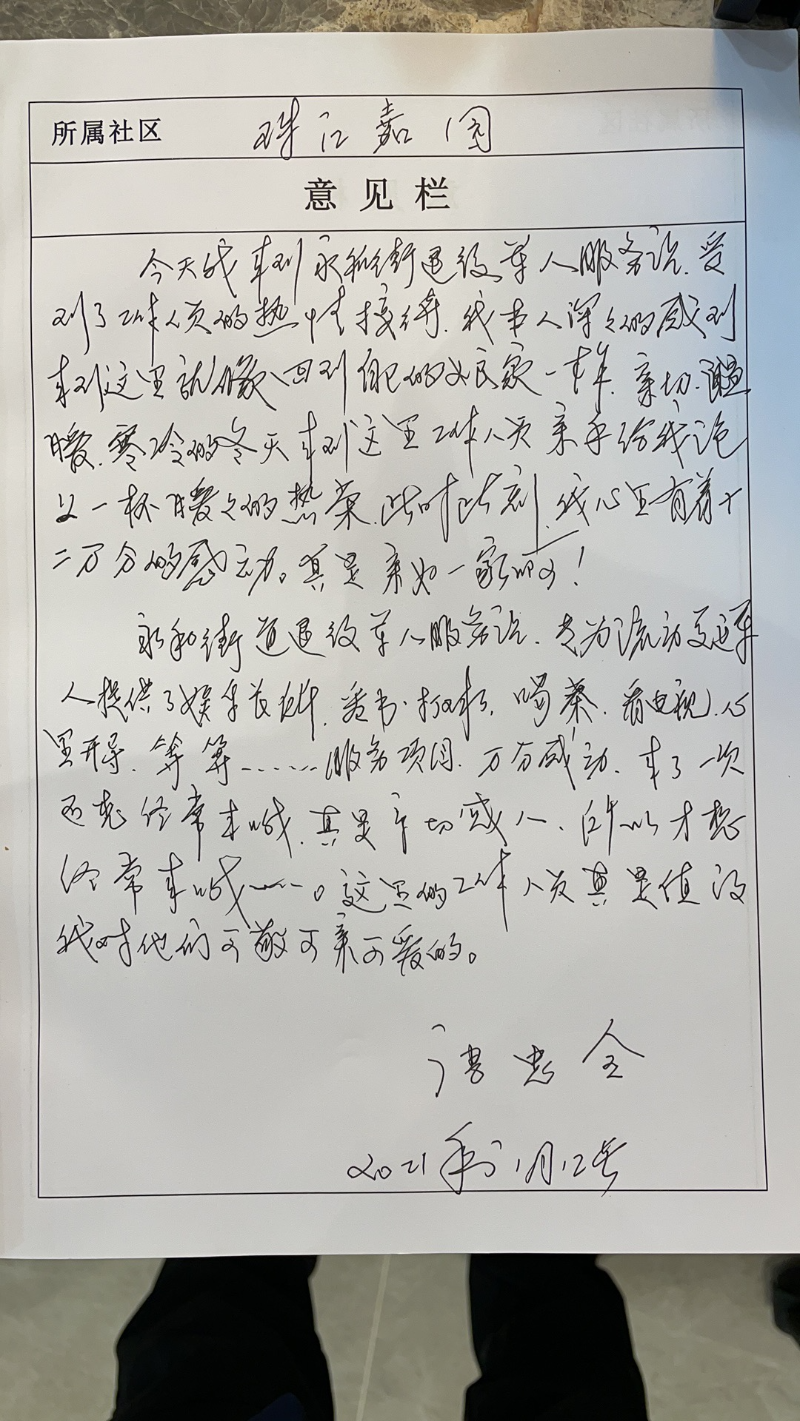 所属社区 珠江嘉园
意见栏
今天我来到永和街退役军人服务站.受
到了工作人员的热情接待.我本人深々的感到
来到这里就像回到自己的家一样.亲切.温
暖.寒冷的冬天来到这里工作人员亲手给我泡
上一杯暖々的热茶.此时此刻.我心里有着十
二万分的感动。真是亲如一家的!
永和街道退役军人服务站.专为流动退军
人提供了娱乐.看书.打.喝茶.看电视.心
里开导.等等……服务项目.万分感动.来了一次
还想经常来哦.真是亲切感人.所以才想
经常来哦……。这里的工作人员真是值得
我对他们可敬可亲可爱的。
忠全
2021年1月12号